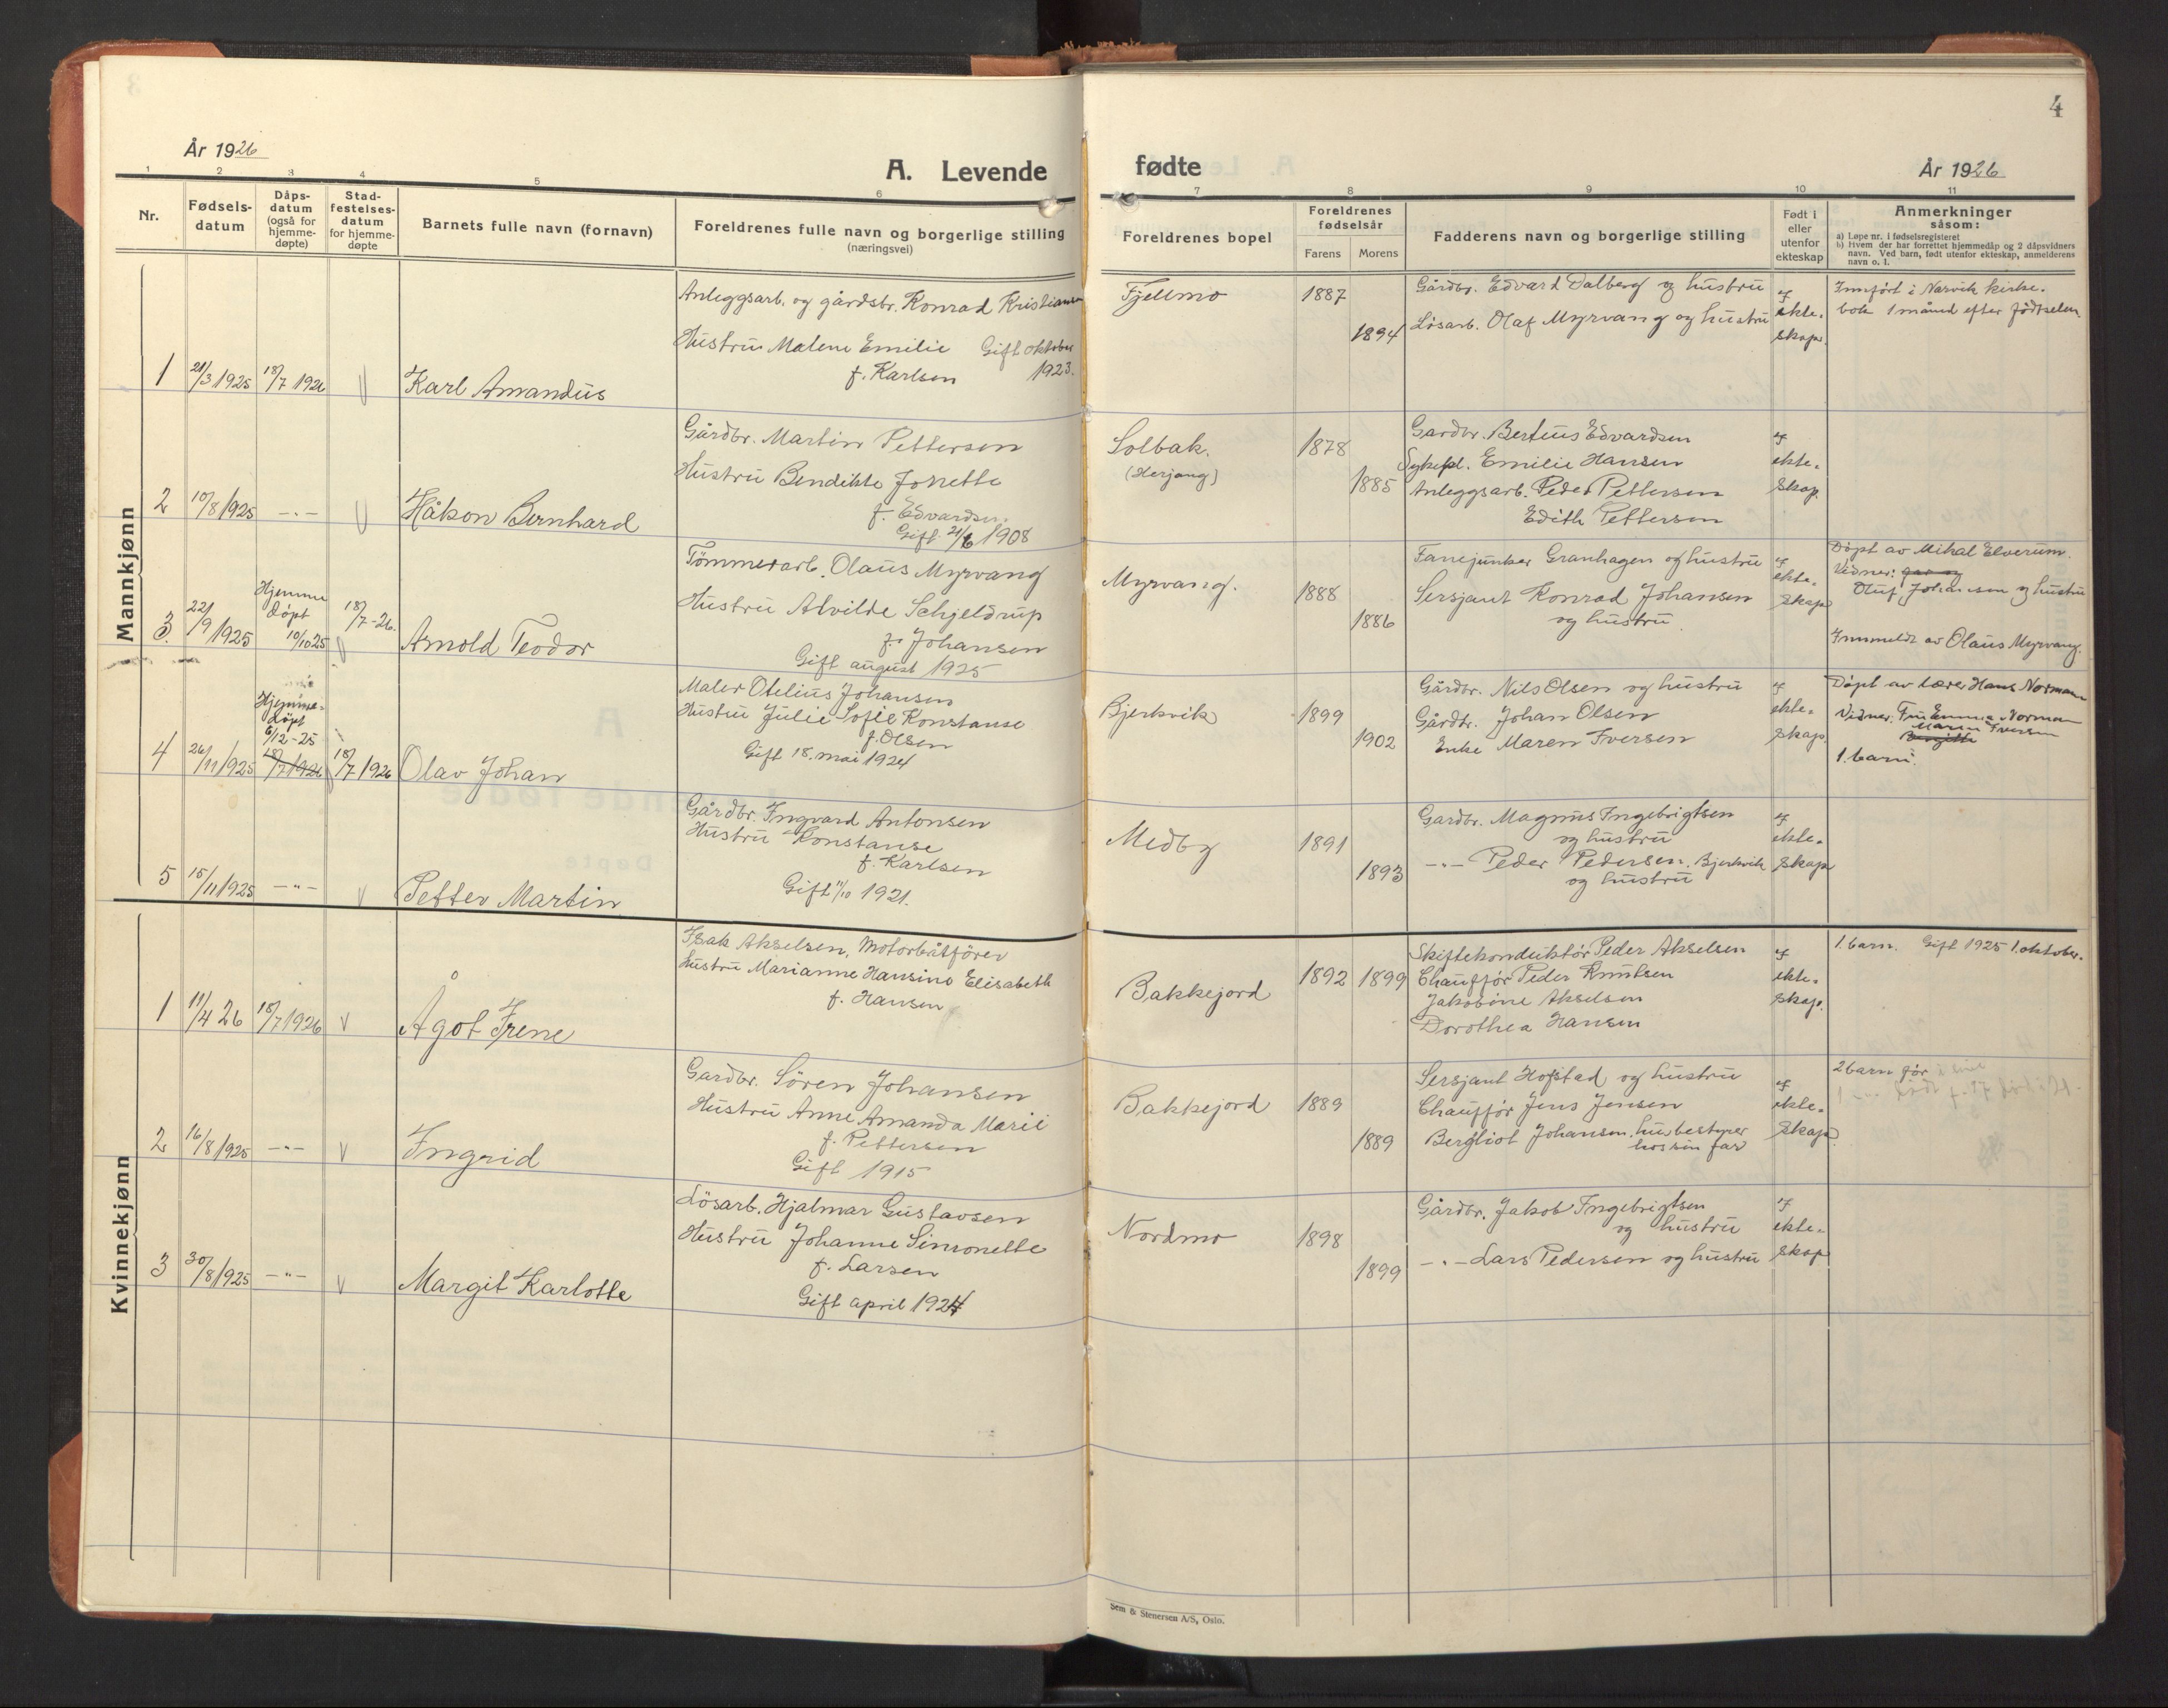 År 1926
A. Levende
1
2
3
4
5
6
Nr.
Fødsels-
datum
Dåps-
datum
(også for
hjemme-
døpte)
Stad-
festelses-
datum
for hjemme-
døpte
Barnets fulle navn (fornavn)
Foreldrenes fulle navn og borgerlige stilling
(næringsvei)
Mannkjønn
Anleggsarb. og gårdbr. Konrad Kristiansen
Hustru Malene Emilie Gift oktober
f. Karlsen 1923.
1 21/3 1925 18/7 1926 V Karl Amandus
Gårdbr. Martin Pettersen
Hustru Bendikte Jonette
f. Edvardsen.
Gift 21/6 1908
2 10/8 1925 -"- V Håkon Bernhard
Tømmerarb. Olaus Myrvang
Hustru Alvilde Schjeldrup
f. Johansen
Gift august 1925
Hjemme
døpt
3. 22/9 1925 10/10 25 18/7-26. V Arnold Teodor
Maler Otelius Johansen
Hustru Julie Sofie Konstanse
f. Olsen
Gift 18. mai 1924
Hjemme-
døpt
6/12-25
4 26/11 1925 18/7 1926 18/7 1926 Olav Johan
Gårdbr. Ingvard Antonsen
Hustru Konstanse
f. Karlsen
Gift 11/10 1921.
5 15/11 1925 -"- V Petter Martin
Kvinnekjønn
Isak Akselsen, Motorbåtfører
Hustru Marianne Hansine Elisabeth
f. Hansen
1 11/4 26 18/7 1926 V Ågot Irene
Gardbr. Søren Johansen
Hustru Anne Amanda Marie
f. Pettersen
Gift 1915
2 16/8 1925 -"- V Ingrid
Løsarb. Hjalmar Gustavsen
Hustru Johanne Simonette
f. Larsen
Gift april 1924
3 30/8 1925 -"- V Margit Karlotte
4
fødte
År 1926
7
8
9
10
11
Foreldrenes bopel
Foreldrenes
fødselsår
Farens
Morens
Fadderens navn og borgerlige stilling
Født i
eller
utenfor
ekteskap
Anmerkninger
såsom:
a) Løpe nr. i fødselsregisteret
b) Hvem der har forrettet hjemmedåp og 2 dåpsvidners
navn. Ved barn, født utenfor ekteskap, anmelderens
navn o. l.
Fjellmo 1887
1894
Gårdbr. Edvard Dalberg og hustru
Løsarb. Olaf Myrvang og hustru
ekte-
skap.
Innført i Narvik kirke-
bok 1 måned efter fødselen.
Solbak.
(Herjang)
1878
1885
Gardbr. Berteus Edvardsen
Sykepl. Emilie Hansen
Anleggsarb. Peder Pettersen
Edith Pettersen
ekte-
skap
Myrvang. 1888
1886
Fanejunker Granhagen og hustru
Sersjant Konrad Johansen
og hustru.
ekte-
skap
Døpt av Mikal Elverum.
Vidner:
Oluf Johansen og hustru
Innmeldt av Olaus Myrvang.
Bjerkvik 1899
1902
Gårdbr. Nils Olsen og hustru
Gårdbr. Johan Olsen
Enke Maren Iversen
ekte-
skap.
Døpt av lærer Hans Normann
Vidner: Fru Emma Norman
Maren Iversen
1. barn.
Medby 1891
1893
Gardbr. Magnus Ingebrigtsen
og hustru
-"- Peder Pedersen. Bjerkvik
og hustru
ekte-
skap
Bakkejord 1892 1899
Skiftekonduktør Peder Akselsen
Chauffør Peder Knutsen
Jakobine Akselsen
Dorothea Hansen
ekte-
skap.
1. barn. Gift 1925 1. oktober.
Bakkejord 1889
1889
Sersjant Hofstad og hustru
Chauffør Jens Jensen
Bergliot Johansen. husbestyrer
hos sin far
ekte-
skap.
2 barn før
Nordmo 1898
1899
Gårdbr. Jakob Ingebrigtsen
og hustru
-"- Lars Pedersen og hustru
ekte-
skap
Sem & Stenersen A/S, Oslo.